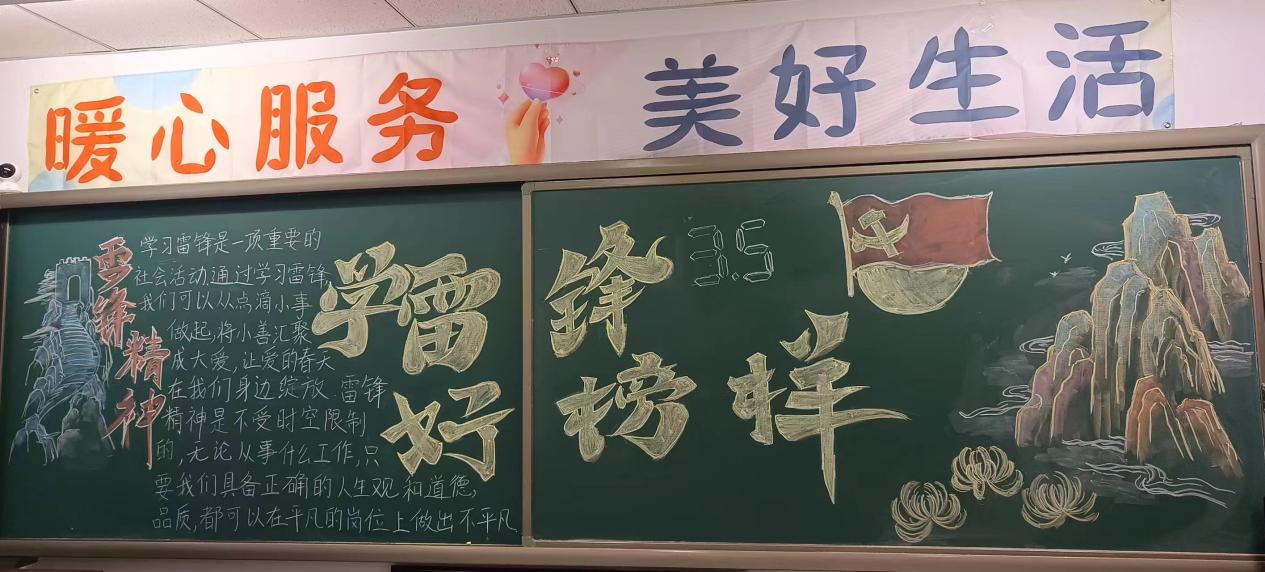 暖心服务 美好生活
雷锋精神
学习雷锋是一项重要的
社会活动,通过学习雷锋,
我们可以从点滴小事
做起,将小善汇聚
成大爱,让爱的春天
在我们身边绽放.雷锋
精神是不受时空限制
的,无论从事什么工作,只
要我们具备正确的人生观和道德,
品质,都可以在平凡的岗位上做出不平凡
学雷锋
3.5
好榜样